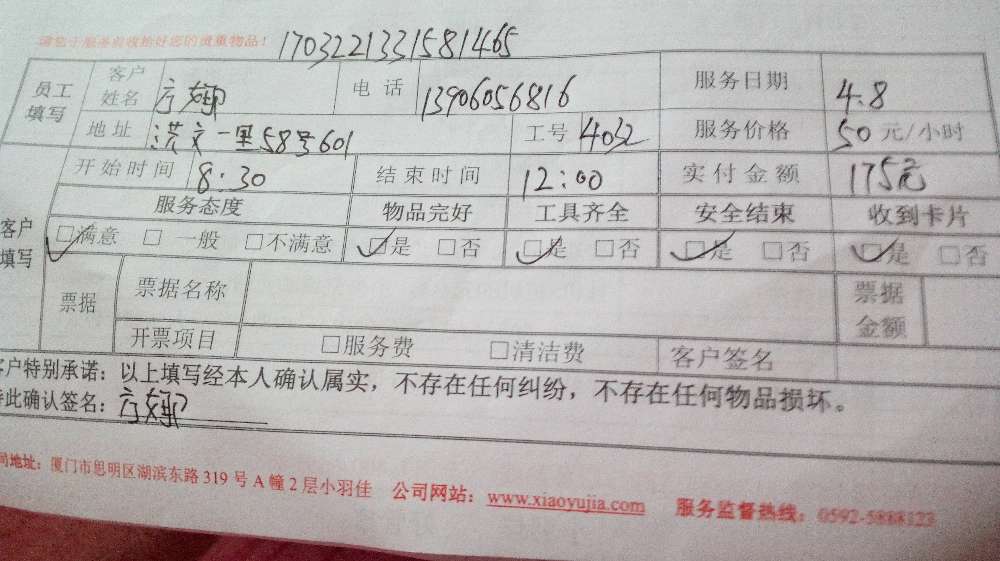 请您于服务前收拾好您的贵重物品！ 1703221331581465
员工填写 客户姓名 方娜 电话 13906056816 服务日期 4.8
地址 洪文一里58号601 工号 服务价格 50元/小时
开始时间 8:30 结束时间 12:00 实付金额 175元
客户填写 服务态度 物品完好 工具齐全 安全结束 收到卡片
□满意 □一般 □不满意 □是 □否 □是 □否 □是 □否 □是 □否
票据 票据名称 票据金额
开票项目 □服务费 □清洁费 客户签名
客户特别承诺：以上填写经本人确认属实，不存在任何纠纷，不存在任何物品损坏。
此确认签名：方娜
地址：厦门市思明区湖滨东路319号A幢2层小羽佳 公司网站：www.xiaoyujia.com 服务监督热线：0592-5888123